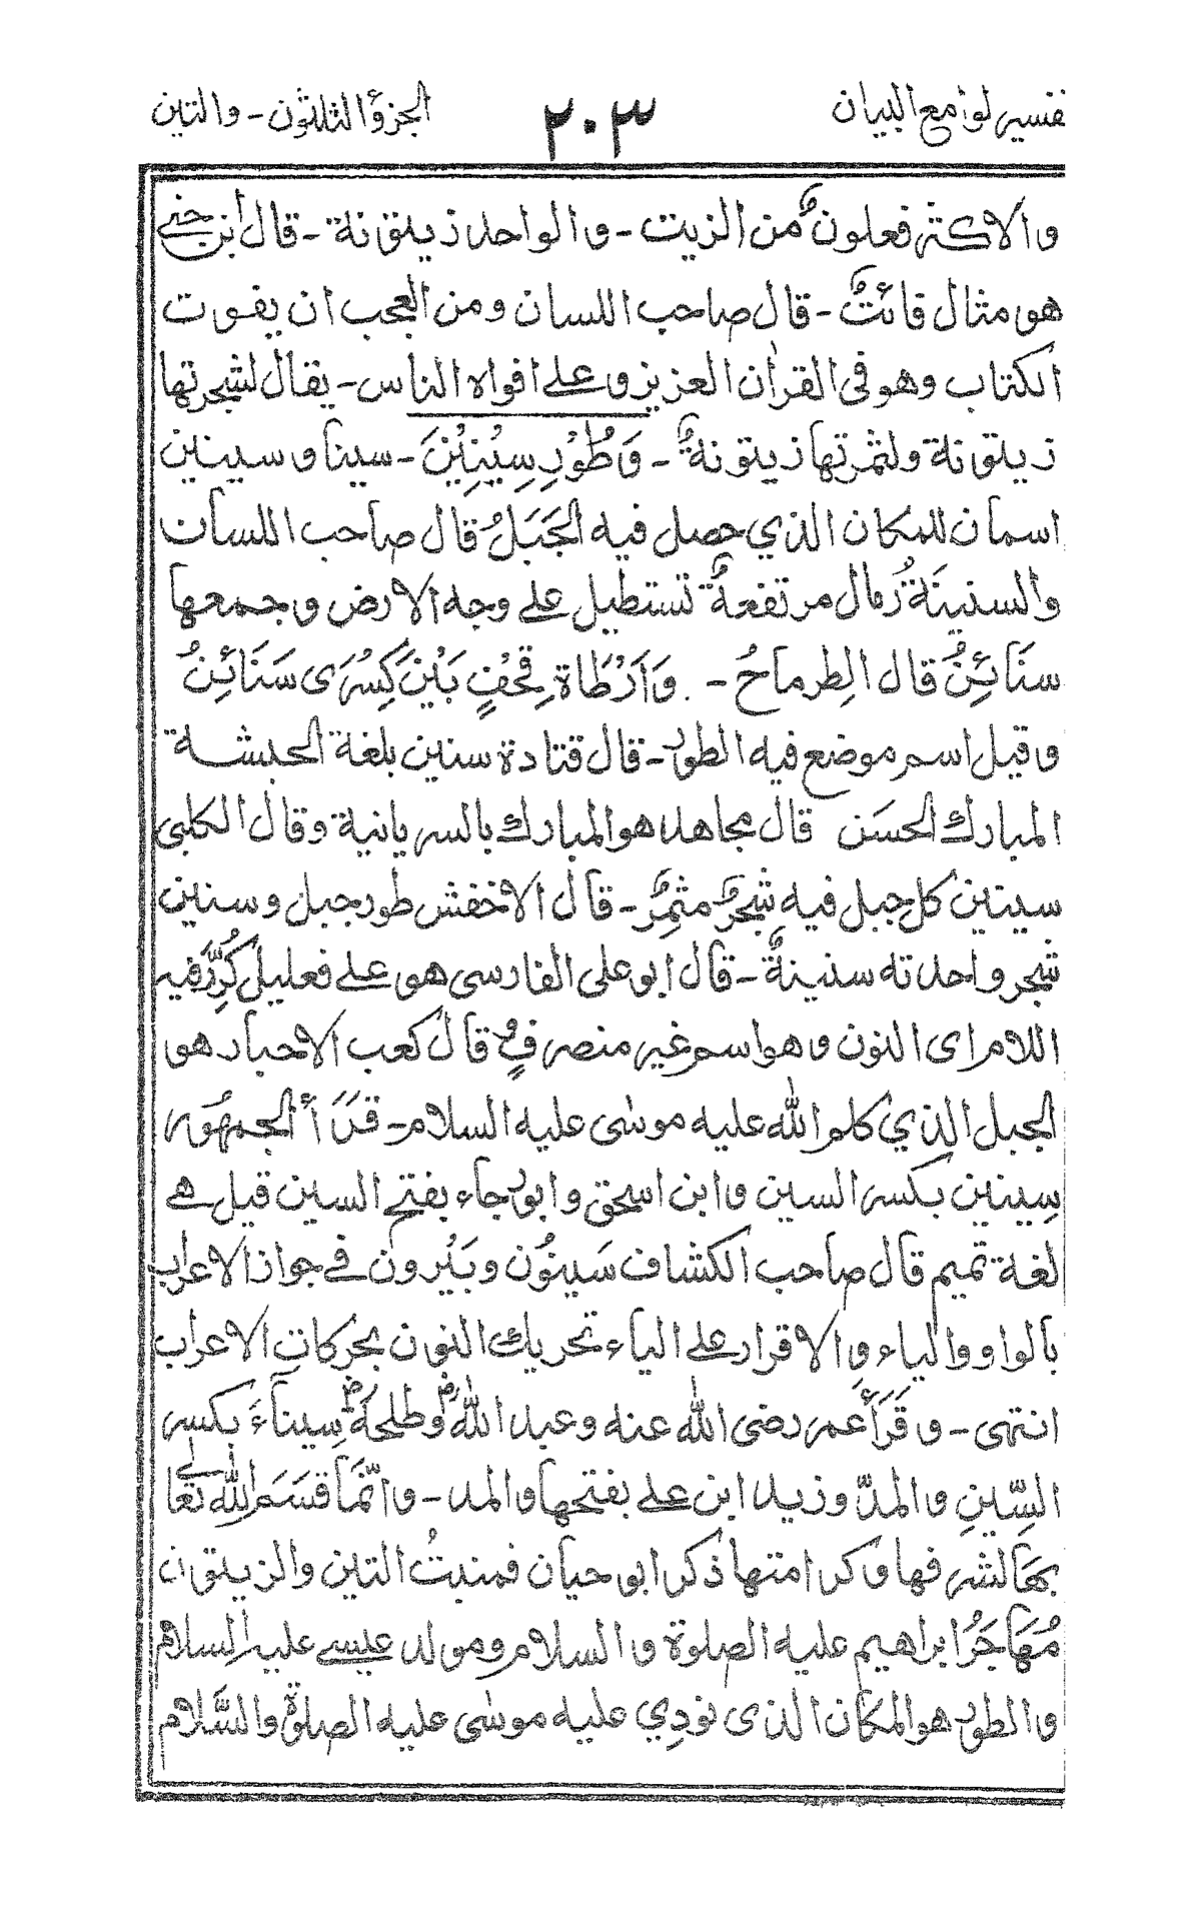 تفسير لوامع البيان ٢٠٣ الجزؤ الثلثون - والتين
والاكثر فعلون من الزيت - والواحد زيتونة - قال ابن جني
هو مثال قائت - قال صاحب اللسان ومن العجب ان يفوت
الكتاب وهو في القرآن العزيز وعلى افواه الناس - يقال لشجرتها
زيتونة ولثمرتها زيتونة - وَطُوْرِ سِيْنِيْنَ - سينا وسينين
اسمان للمكان الذي حصل فيه الجَبَلُ قال صاحب اللسان
والسنينَة رُمال مرتفعة تستطيل على وجه الارض وجمعها
سَنَائِنُ قال الطِرماحُ - وَاَرْطَاةِ قَحْفٍ بَيْنَ كِسْرَى سَنَائِنُ
وقيل اسم موضع فيه الطور - قال قتادة سنين بلغة الحبشة
المبارك الحسَن قال مجاهد هو المبارك بالسريانية وقال الكلبي
سينين كل جبل فيه شجرٌ مثمِرٌ - قال الاخفش طور جبل وسنين
شجر واحدته سنينةٌ - قال ابو على الفارسى هو على فعليل كُرِّرَ فيه
اللام اى النون وهو اسم غير منصرفٍ وقال كعب الاحبار هو
الجبل الذي كلم الله عليه موسٰى عليه السلام - قَرَأ الجمهُور
سِينين بكسر السين وابن اسحٰق وابو رجاء بفتح السين قيل هي
لغة تميم قال صاحب الكشاف سَينُون وبَيْرون في جواز الاعراب
بالواو والياء والاقرار على الياء تحريك النون بحركات الاعراب
انتهى - وقَرَأَ عمر رضى الله عنه وعبد الله رض وطلحة رض سِيناءَ بكسر
السِّينِ والمدّ وزيد ابن على بفتحها والمد - وانَّما قسَم الله تعالٰى
بها لشرفها وكرامتها ذكر ابو حيان فمنبتُ التين والزيتون
مُهَاجَرُ ابراهيم عليه الصلوة والسلام ومولد عيسٰى عليه السلام
والطور هو المكان الذى نودِي عليه موسٰى عليه الصلوة والسَّلام